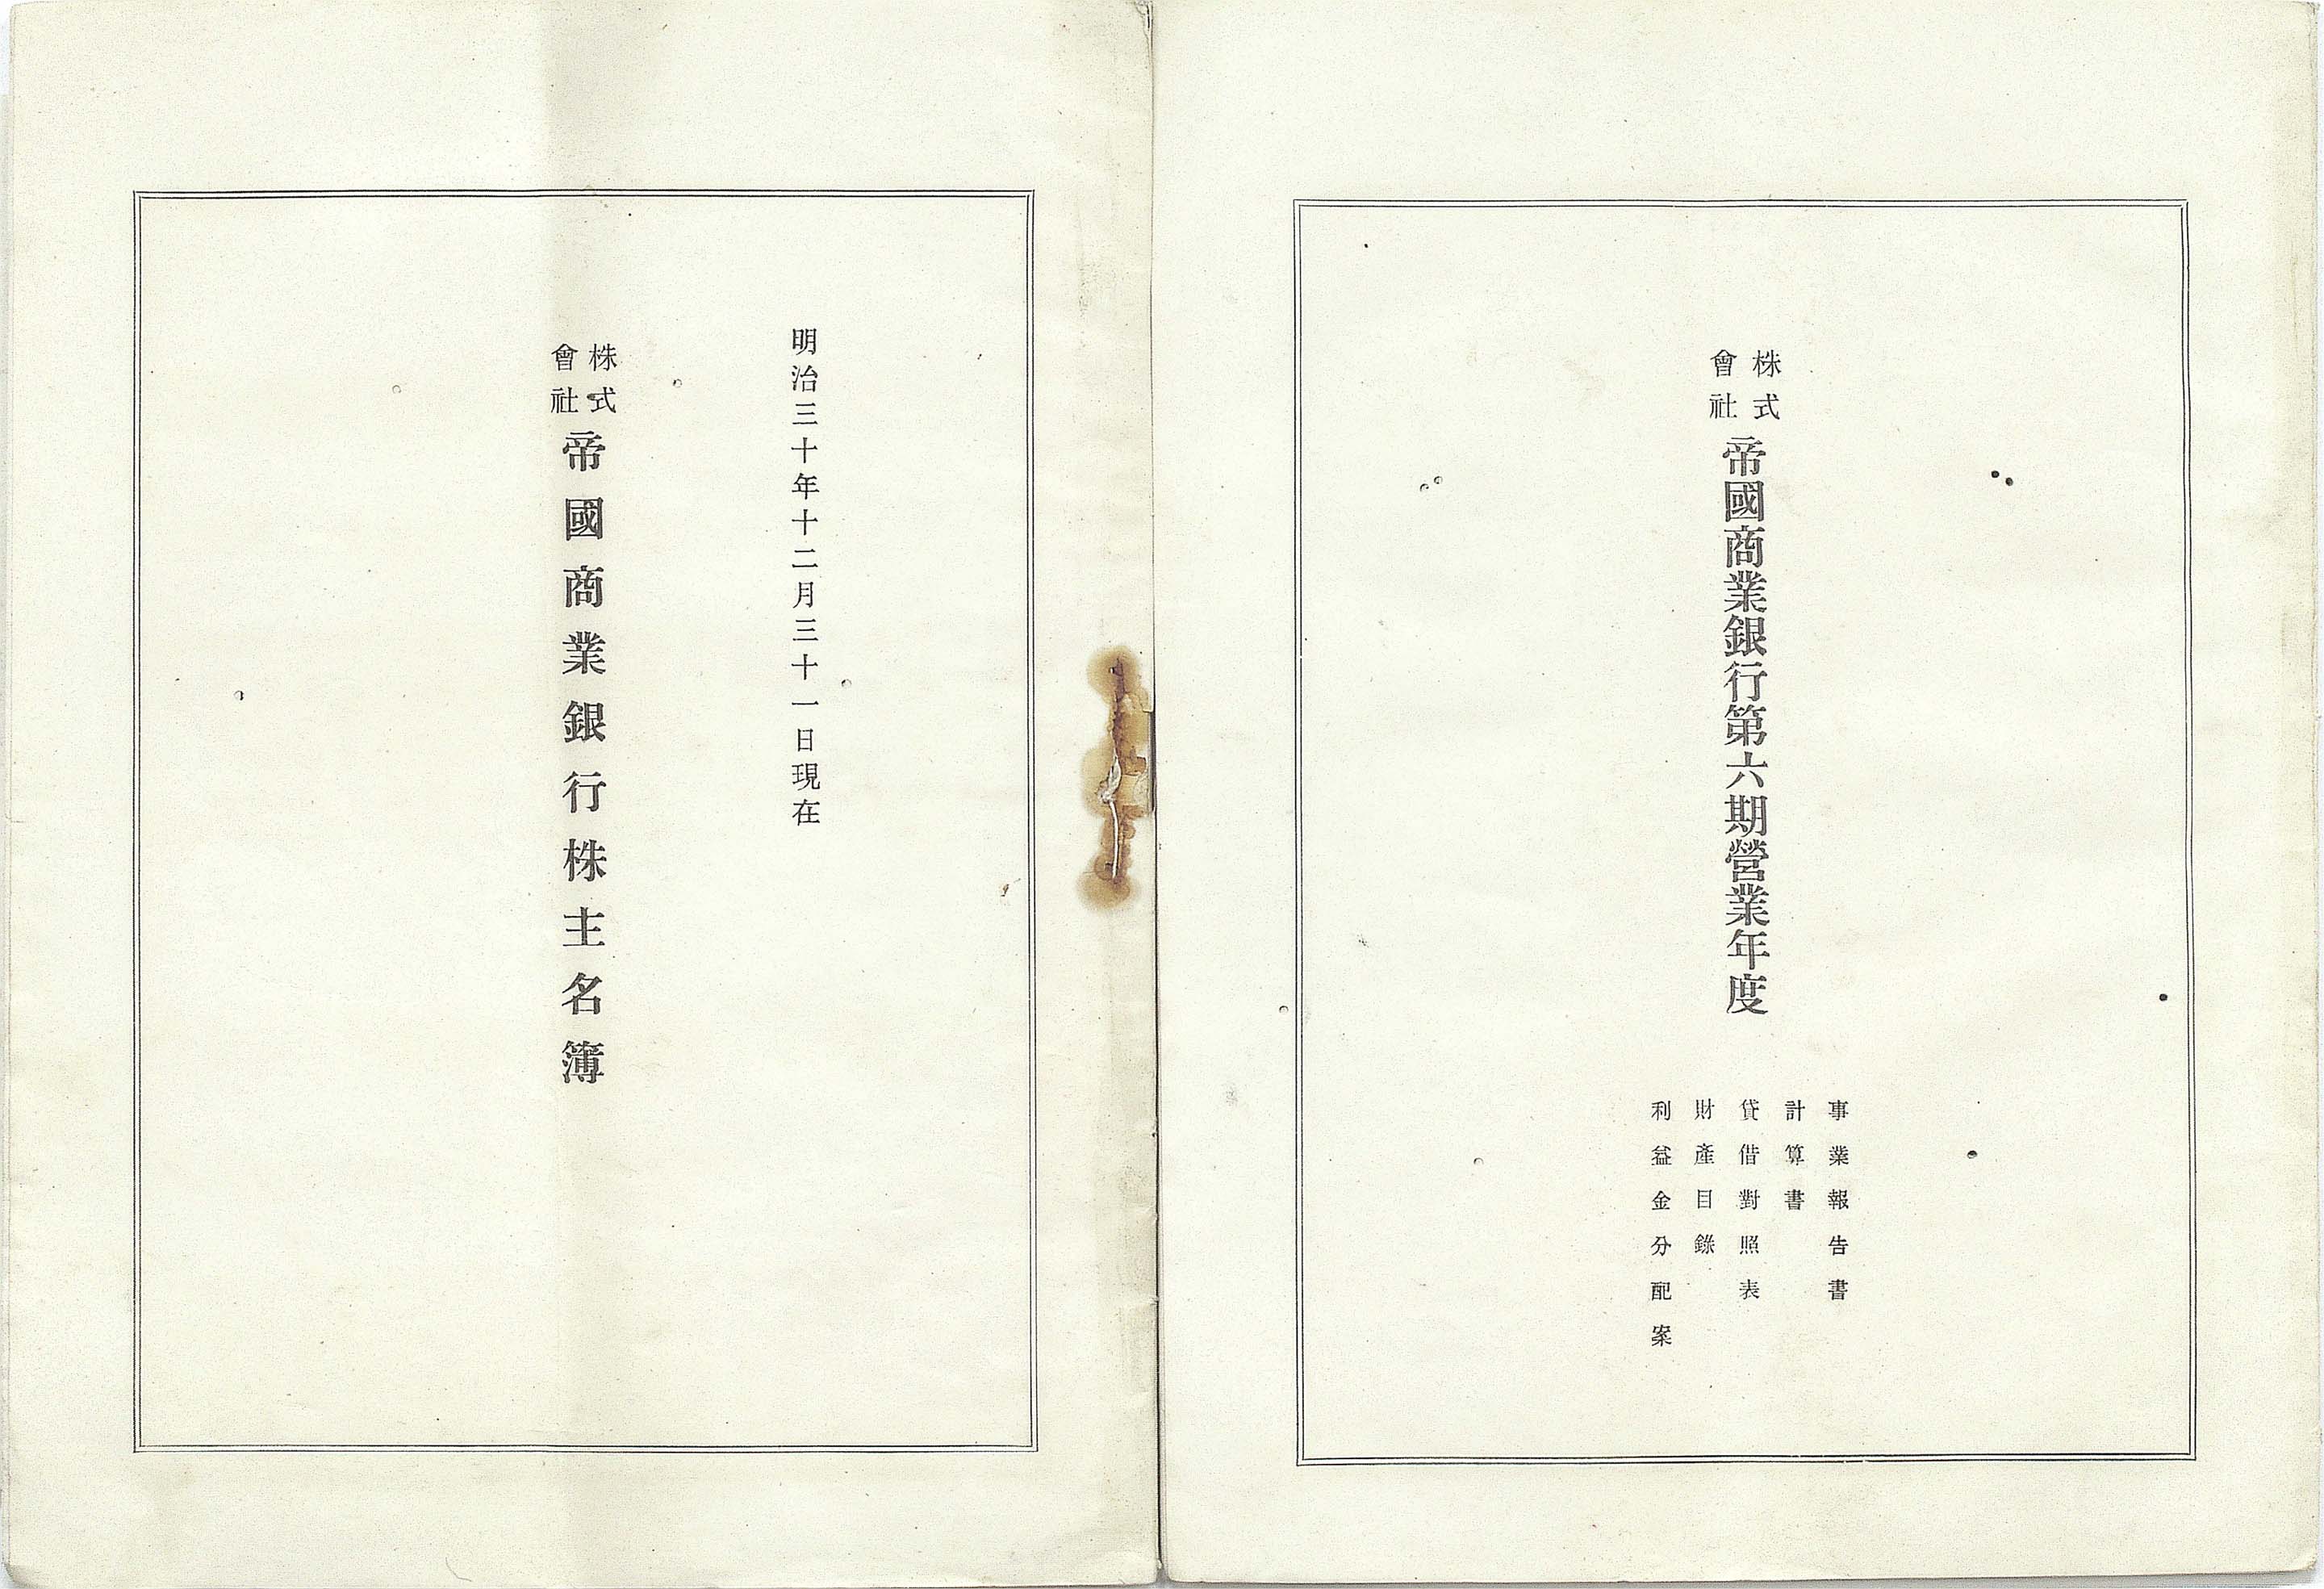 株式會社帝國商業銀行第六期營業年度
事業報告書
計算書
貸借對照表
財產目錄
利益金分配案
明治三十年十二月三十一日現在
株式會社帝國商業銀行株主名簿